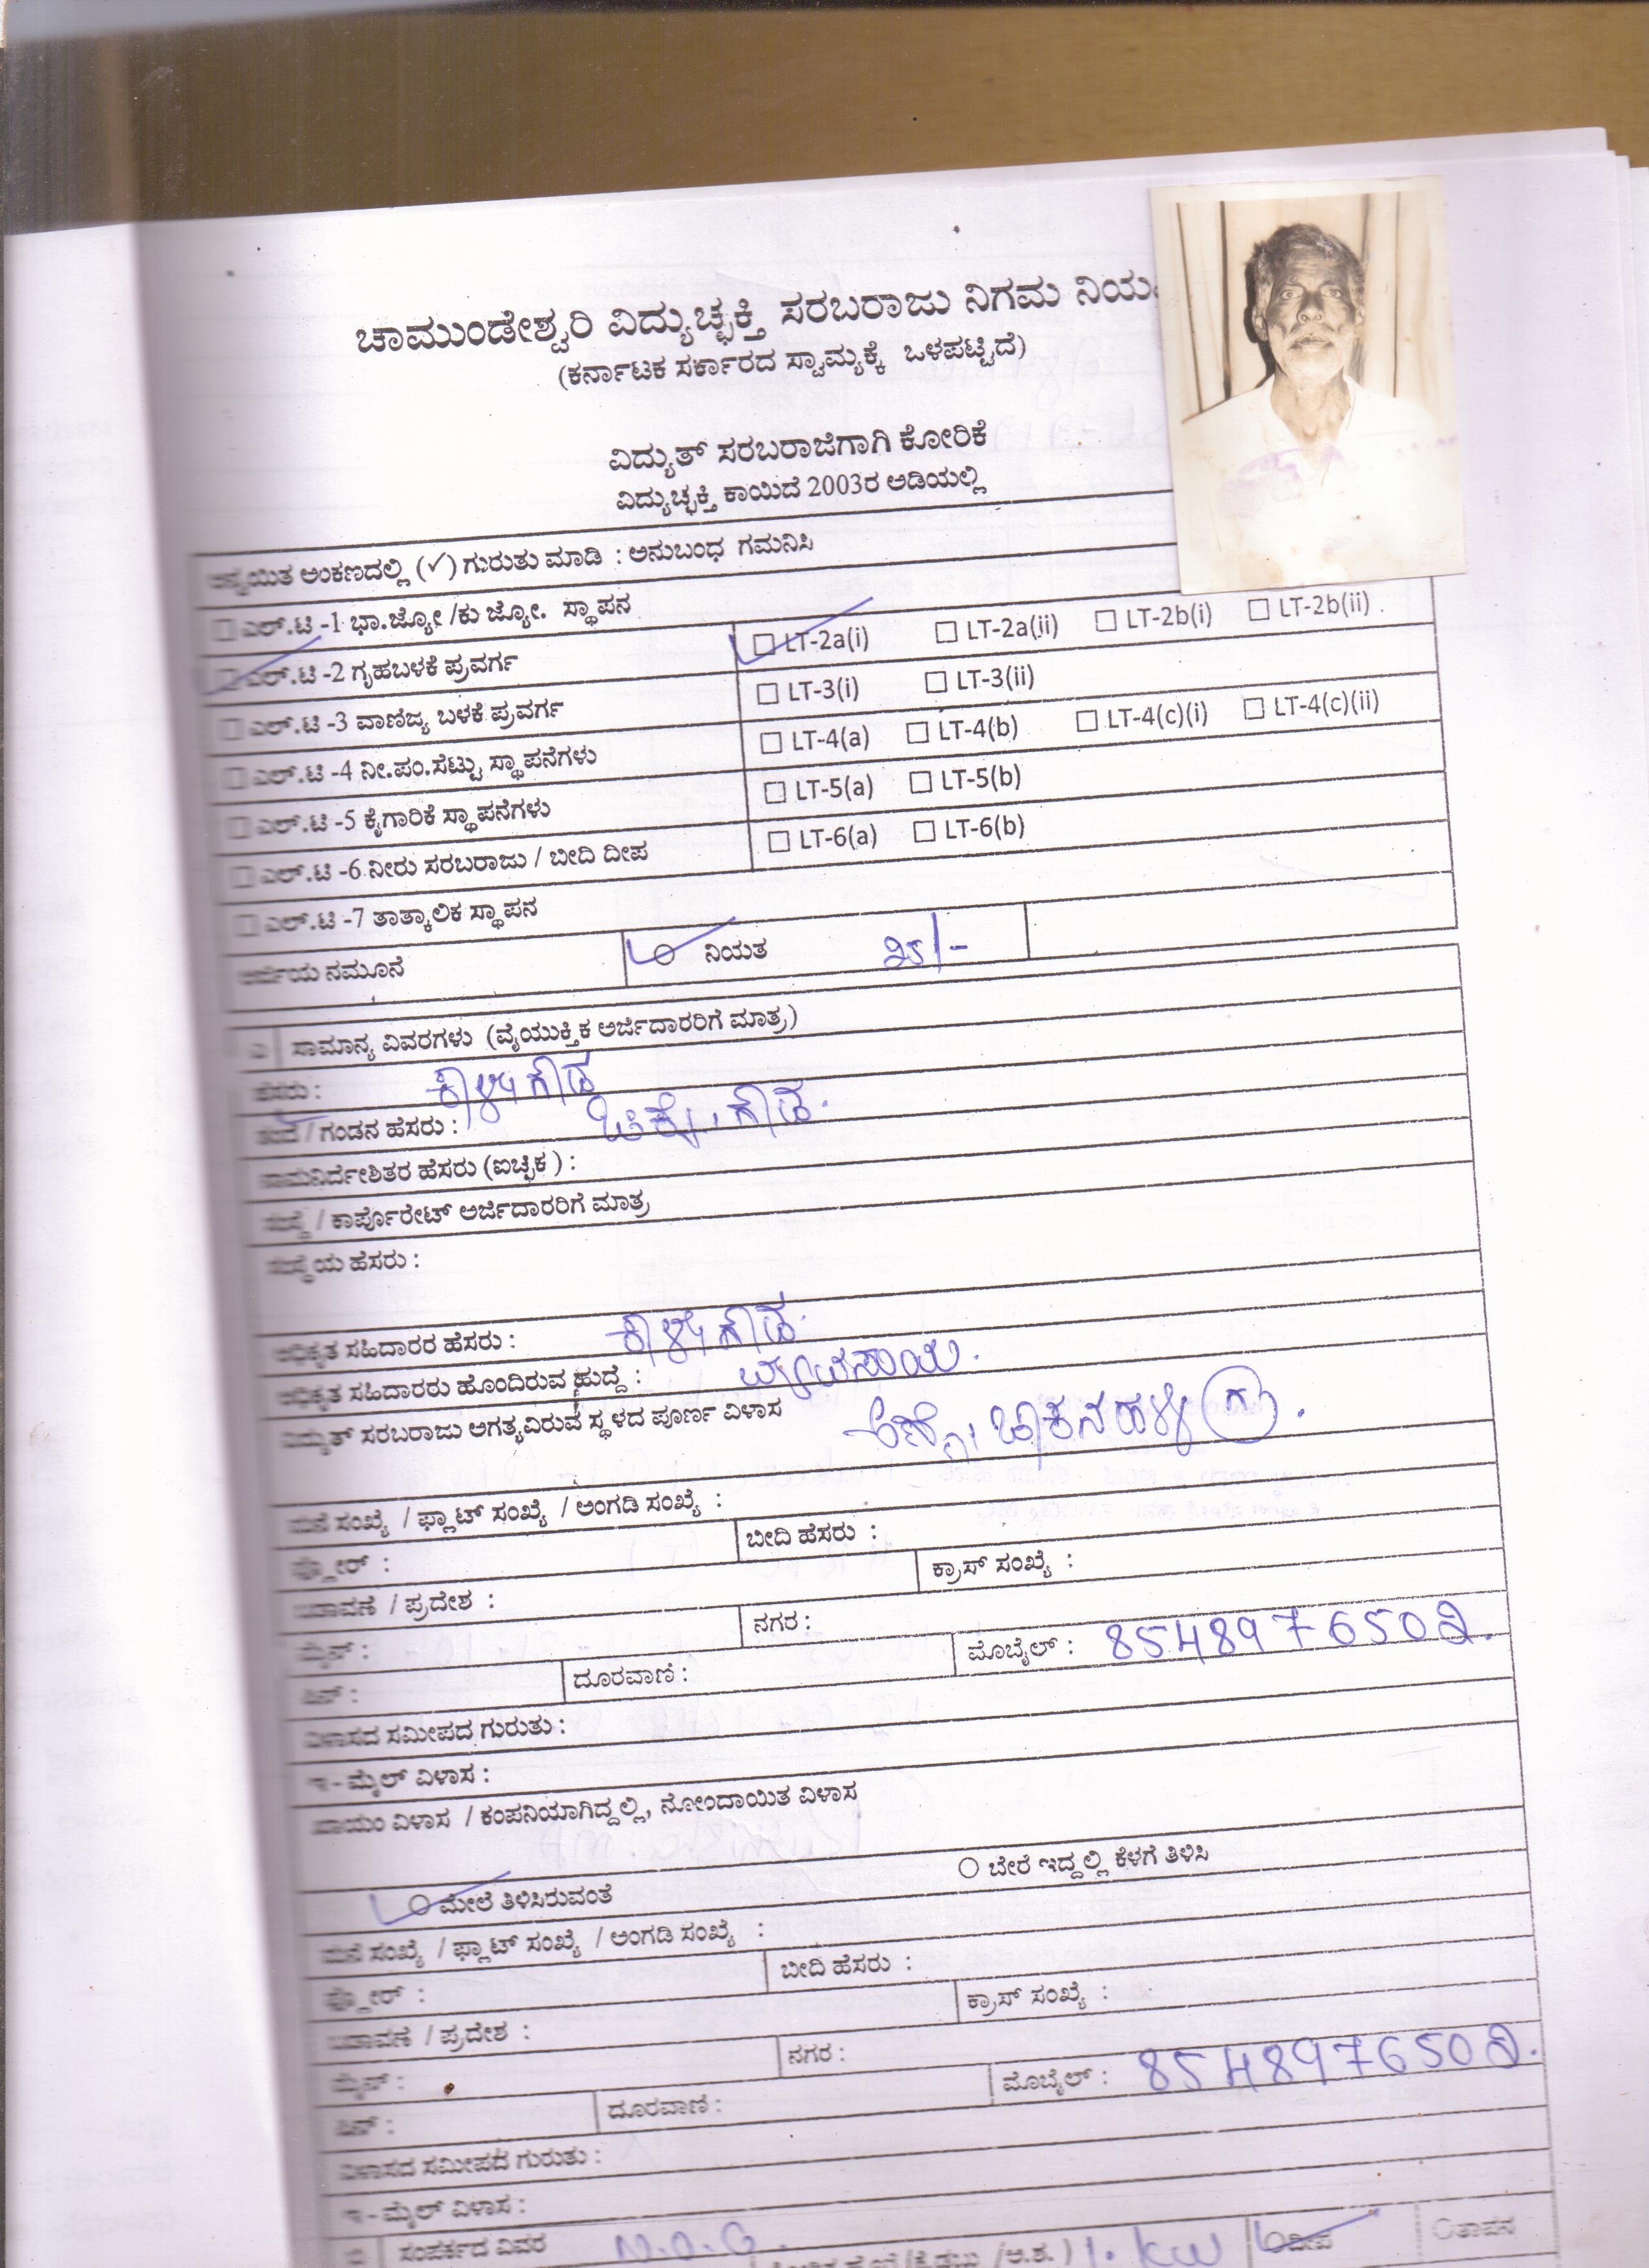 ಚಾಮುಂಡೇಶ್ವರಿ ವಿದ್ಯುಚ್ಛಕ್ತಿ ಸರಬರಾಜು ನಿಗಮ ನಿಯ
(ಕರ್ನಾಟಕ ಸರ್ಕಾರದ ಸ್ವಾಮ್ಯಕ್ಕೆ ಒಳಪಟ್ಟಿದೆ)
ವಿದ್ಯುತ್ ಸರಬರಾಜಿಗಾಗಿ ಕೋರಿಕೆ
ವಿದ್ಯುಚ್ಛಕ್ತಿ ಕಾಯಿದೆ 2003ರ ಅಡಿಯಲ್ಲಿ
ಅನ್ವಯಿತ ಅಂಕಣದಲ್ಲಿ (✓) ಗುರುತು ಮಾಡಿ : ಅನುಬಂಧ ಗಮನಿಸಿ
ಎಲ್.ಟಿ -1 ಭಾ.ಜ್ಯೋ /ಕು ಜ್ಯೋ. ಸ್ಥಾಪನ
ಎಲ್.ಟಿ -2 ಗೃಹಬಳಕೆ ಪ್ರವರ್ಗ LT-2a(i) LT-2a(ii) LT-2b(i) LT-2b(ii)
ಎಲ್.ಟಿ -3 ವಾಣಿಜ್ಯ ಬಳಕೆ ಪ್ರವರ್ಗ LT-3(i) LT-3(ii)
ಎಲ್.ಟಿ -4 ನೀ.ಪಂ.ಸೆಟ್ಟು ಸ್ಥಾಪನೆಗಳು LT-4(a) LT-4(b) LT-4(c)(i) LT-4(c)(ii)
ಎಲ್.ಟಿ -5 ಕೈಗಾರಿಕೆ ಸ್ಥಾಪನೆಗಳು LT-5(a) LT-5(b)
ಎಲ್.ಟಿ -6 ನೀರು ಸರಬರಾಜು / ಬೀದಿ ದೀಪ LT-6(a) LT-6(b)
ಎಲ್.ಟಿ -7 ತಾತ್ಕಾಲಿಕ ಸ್ಥಾಪನ
ಅರ್ಜಿಯ ನಮೂನೆ ನಿಯತ 25/-
ಎ ಸಾಮಾನ್ಯ ವಿವರಗಳು (ವೈಯುಕ್ತಿಕ ಅರ್ಜಿದಾರರಿಗೆ ಮಾತ್ರ)
ಹೆಸರು : ಕಾಳೇಗೌಡ
ತಂದೆ / ಗಂಡನ ಹೆಸರು : ಚಿಕ್ಕೇಗೌಡ.
ನಾಮನಿರ್ದೇಶಿತರ ಹೆಸರು (ಐಚ್ಛಿಕ) :
ಸಂಸ್ಥೆ / ಕಾರ್ಪೊರೇಟ್ ಅರ್ಜಿದಾರರಿಗೆ ಮಾತ್ರ
ಸಂಸ್ಥೆಯ ಹೆಸರು :
ಅಧಿಕೃತ ಸಹಿದಾರರ ಹೆಸರು : ಕಾಳೇಗೌಡ.
ಅಧಿಕೃತ ಸಹಿದಾರರು ಹೊಂದಿರುವ ಹುದ್ದೆ : ವ್ಯವಸಾಯ.
ವಿದ್ಯುತ್ ಸರಬರಾಜು ಅಗತ್ಯವಿರುವ ಸ್ಥಳದ ಪೂರ್ಣ ವಿಳಾಸ ಅಣ್ಣೇಚಾಕನಹಳ್ಳಿ ಗ್ರಾ.
ಮನೆ ಸಂಖ್ಯೆ / ಫ್ಲಾಟ್ ಸಂಖ್ಯೆ / ಅಂಗಡಿ ಸಂಖ್ಯೆ :
ಫ್ಲೋರ್ : ಬೀದಿ ಹೆಸರು :
ಬಡಾವಣೆ / ಪ್ರದೇಶ : ಕ್ರಾಸ್ ಸಂಖ್ಯೆ :
ಮೈನ್ : ನಗರ :
ಪಿನ್ : ದೂರವಾಣಿ : ಮೊಬೈಲ್ : 854897650೨.
ವಿಳಾಸದ ಸಮೀಪದ ಗುರುತು :
ಇ - ಮೈಲ್ ವಿಳಾಸ :
ಖಾಯಂ ವಿಳಾಸ / ಕಂಪನಿಯಾಗಿದ್ದಲ್ಲಿ, ನೋಂದಾಯಿತ ವಿಳಾಸ
ಮೇಲೆ ತಿಳಿಸಿರುವಂತೆ ಬೇರೆ ಇದ್ದಲ್ಲಿ ಕೆಳಗೆ ತಿಳಿಸಿ
ಮನೆ ಸಂಖ್ಯೆ / ಫ್ಲಾಟ್ ಸಂಖ್ಯೆ / ಅಂಗಡಿ ಸಂಖ್ಯೆ :
ಫ್ಲೋರ್ : ಬೀದಿ ಹೆಸರು :
ಬಡಾವಣೆ / ಪ್ರದೇಶ : ಕ್ರಾಸ್ ಸಂಖ್ಯೆ :
ಮೈನ್ : ನಗರ :
ಪಿನ್ : ದೂರವಾಣಿ : ಮೊಬೈಲ್ : 854897650೨.
ವಿಳಾಸದ ಸಮೀಪದ ಗುರುತು :
ಇ - ಮೈಲ್ ವಿಳಾಸ :
ಸಂಪರ್ಕದ ವಿವರ 1. KW ದೀಪ ತಾಪನ